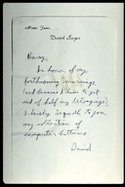 From
David Singer
Barry,
In honor of my
forthcoming marriage
(and because I have to get
rid of half my belongings),
I hereby bequeath to you
my collection of
computer buttons.
David